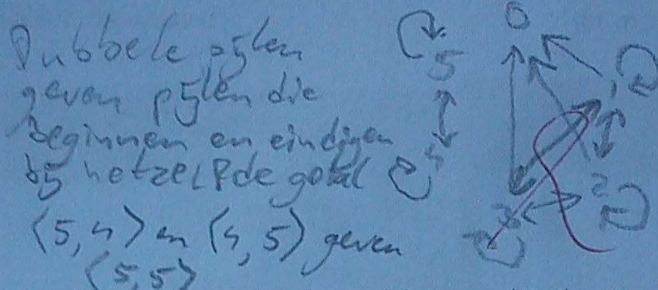 Dubbele pijlen
geven pijlen die
beginnen en eindigen
bij hetzelfde getal
<5,4> en <4,5> geven
<5,5>
0
5
1
4
3
2